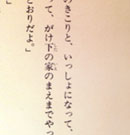 のきこりと、いっしょになって、
って、がけ下の家のまえまでやっ
とおりだよ。」